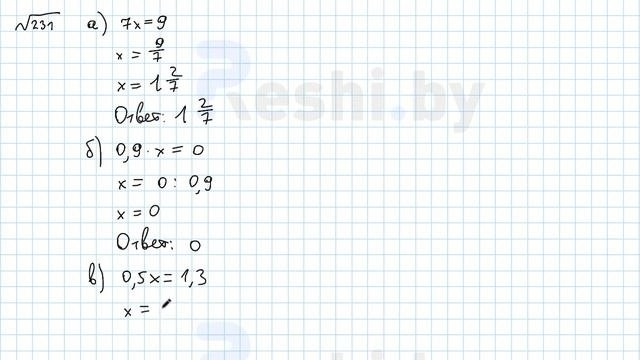 √231 а) 7x = 9
x = 9/7
x = 1 2/7
Ответ: 1 2/7
б) 0,9 · x = 0
x = 0 : 0,9
x = 0
Ответ: 0
в) 0,5x = 1,3
x =
Reshi.by
Reshi.by